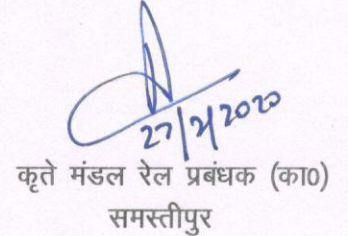 27/2/2020
कृते मंडल रेल प्रबंधक (का0)
समस्तीपुर